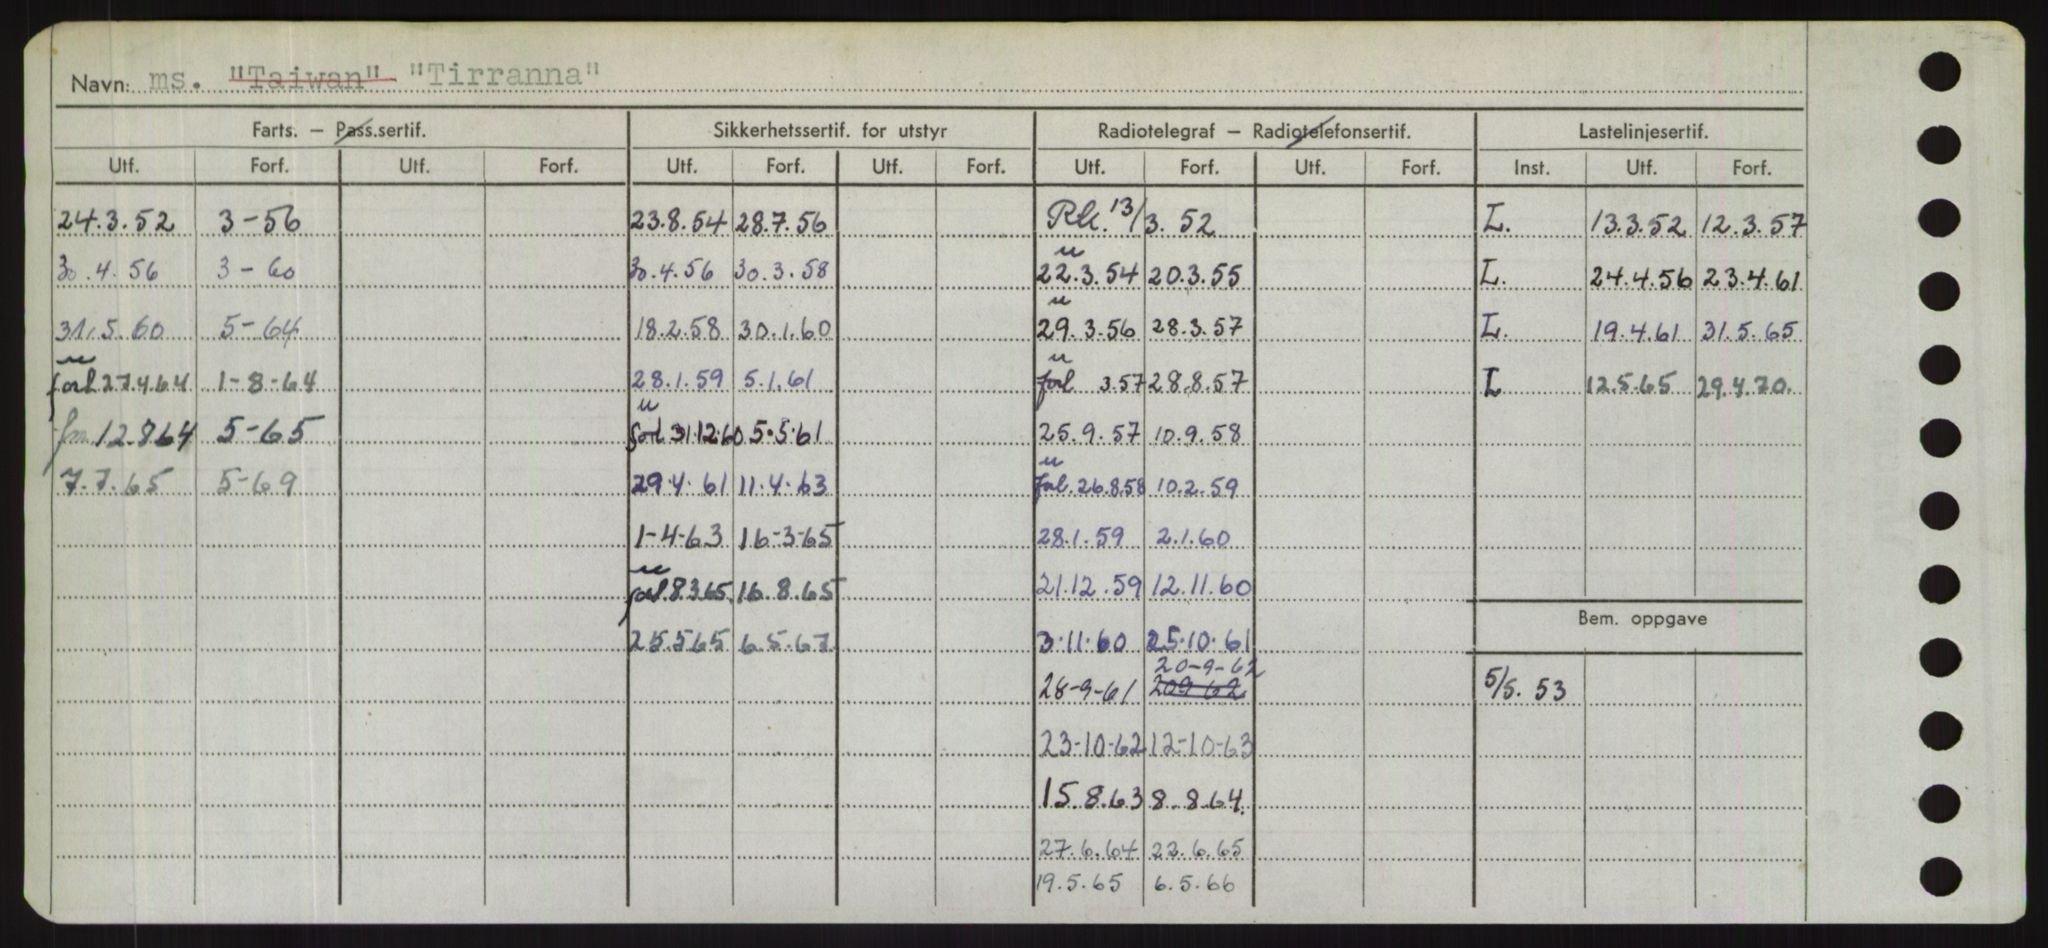 Navn: ms. "Taiwan" "Tirranna"
Farts. – Pass.sertif. Sikkerhetssertif. for utstyr Radiotelegraf – Radiotelefonsertif. Lastelinjesertif.
Utf. Forf. Utf. Forf. Utf. Forf. Utf. Forf. Utf. Forf. Utf. Forf. Inst. Utf. Forf.
24.3.52 3-56 23.8.54 28.7.56 13/3.52 L. 13.3.52 12.3.57
30.4.56 3-60 30.4.56 30.3.58 22.3.54 20.3.55 L. 24.4.56 23.4.61
31.5.60 5-64 18.2.58 30.1.60 29.3.56 28.3.57 L. 19.4.61 31.5.65
forl 27.4.64 1-8-64 28.1.59 5.1.61 forl 3.57 28.8.57 L 12.5.65 29.4.70.
12.8.64 5-65 forl 31.12.60 5.5.61 25.9.57 10.9.58
7.7.65 5-69 29.4.61 11.4.63 forl. 26.8.58 10.2.59
1-4-63 16-3-65 28.1.59 2.1.60
forl. 8.3.65 16.8.65 21.12.59 12.11.60
Bem. oppgave
25.5.65 6.5.67 3.11.60 25.10.61
20-9-62
28-9-61 20 9 62 5/5.53
23-10-62 12-10-63
15.8.63 8.8.64.
27.6.64 22.6.65
19.5.65 6.5.66